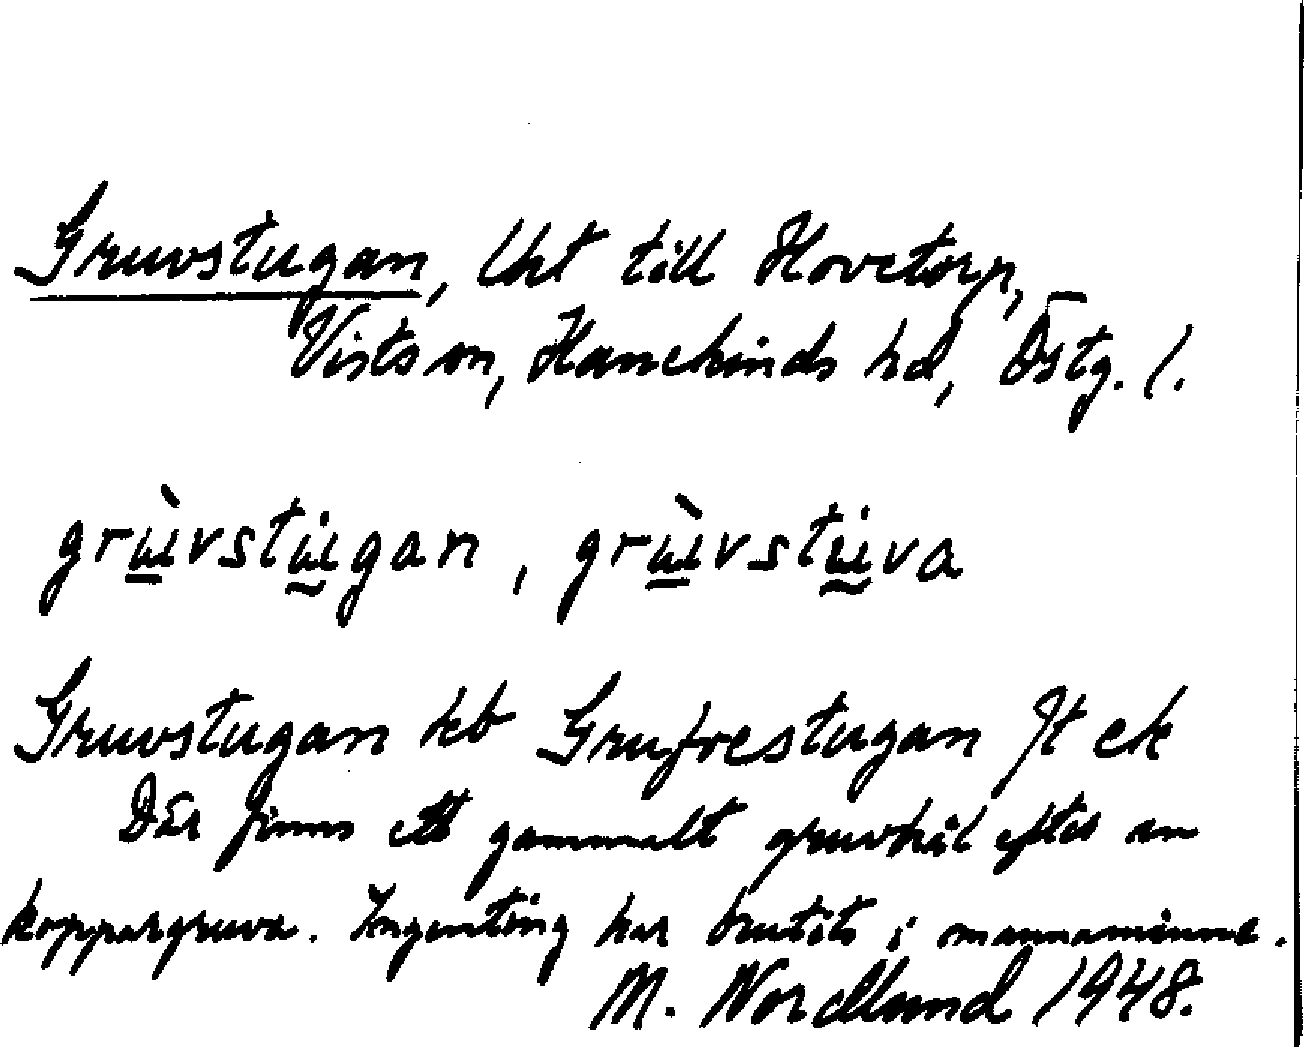 Gruvstugan, lht till Hovetorp,
Vists sn, Hanekinds hd, Östg. l.
grùvstugan, grùvstuva
Gruvstugan kb Grufvestugan Jt ek
Där finns ett gammalt gruvhål efter en
koppargruva. Ingenting har brutits i mannaminne.
M. Nordland 1948.